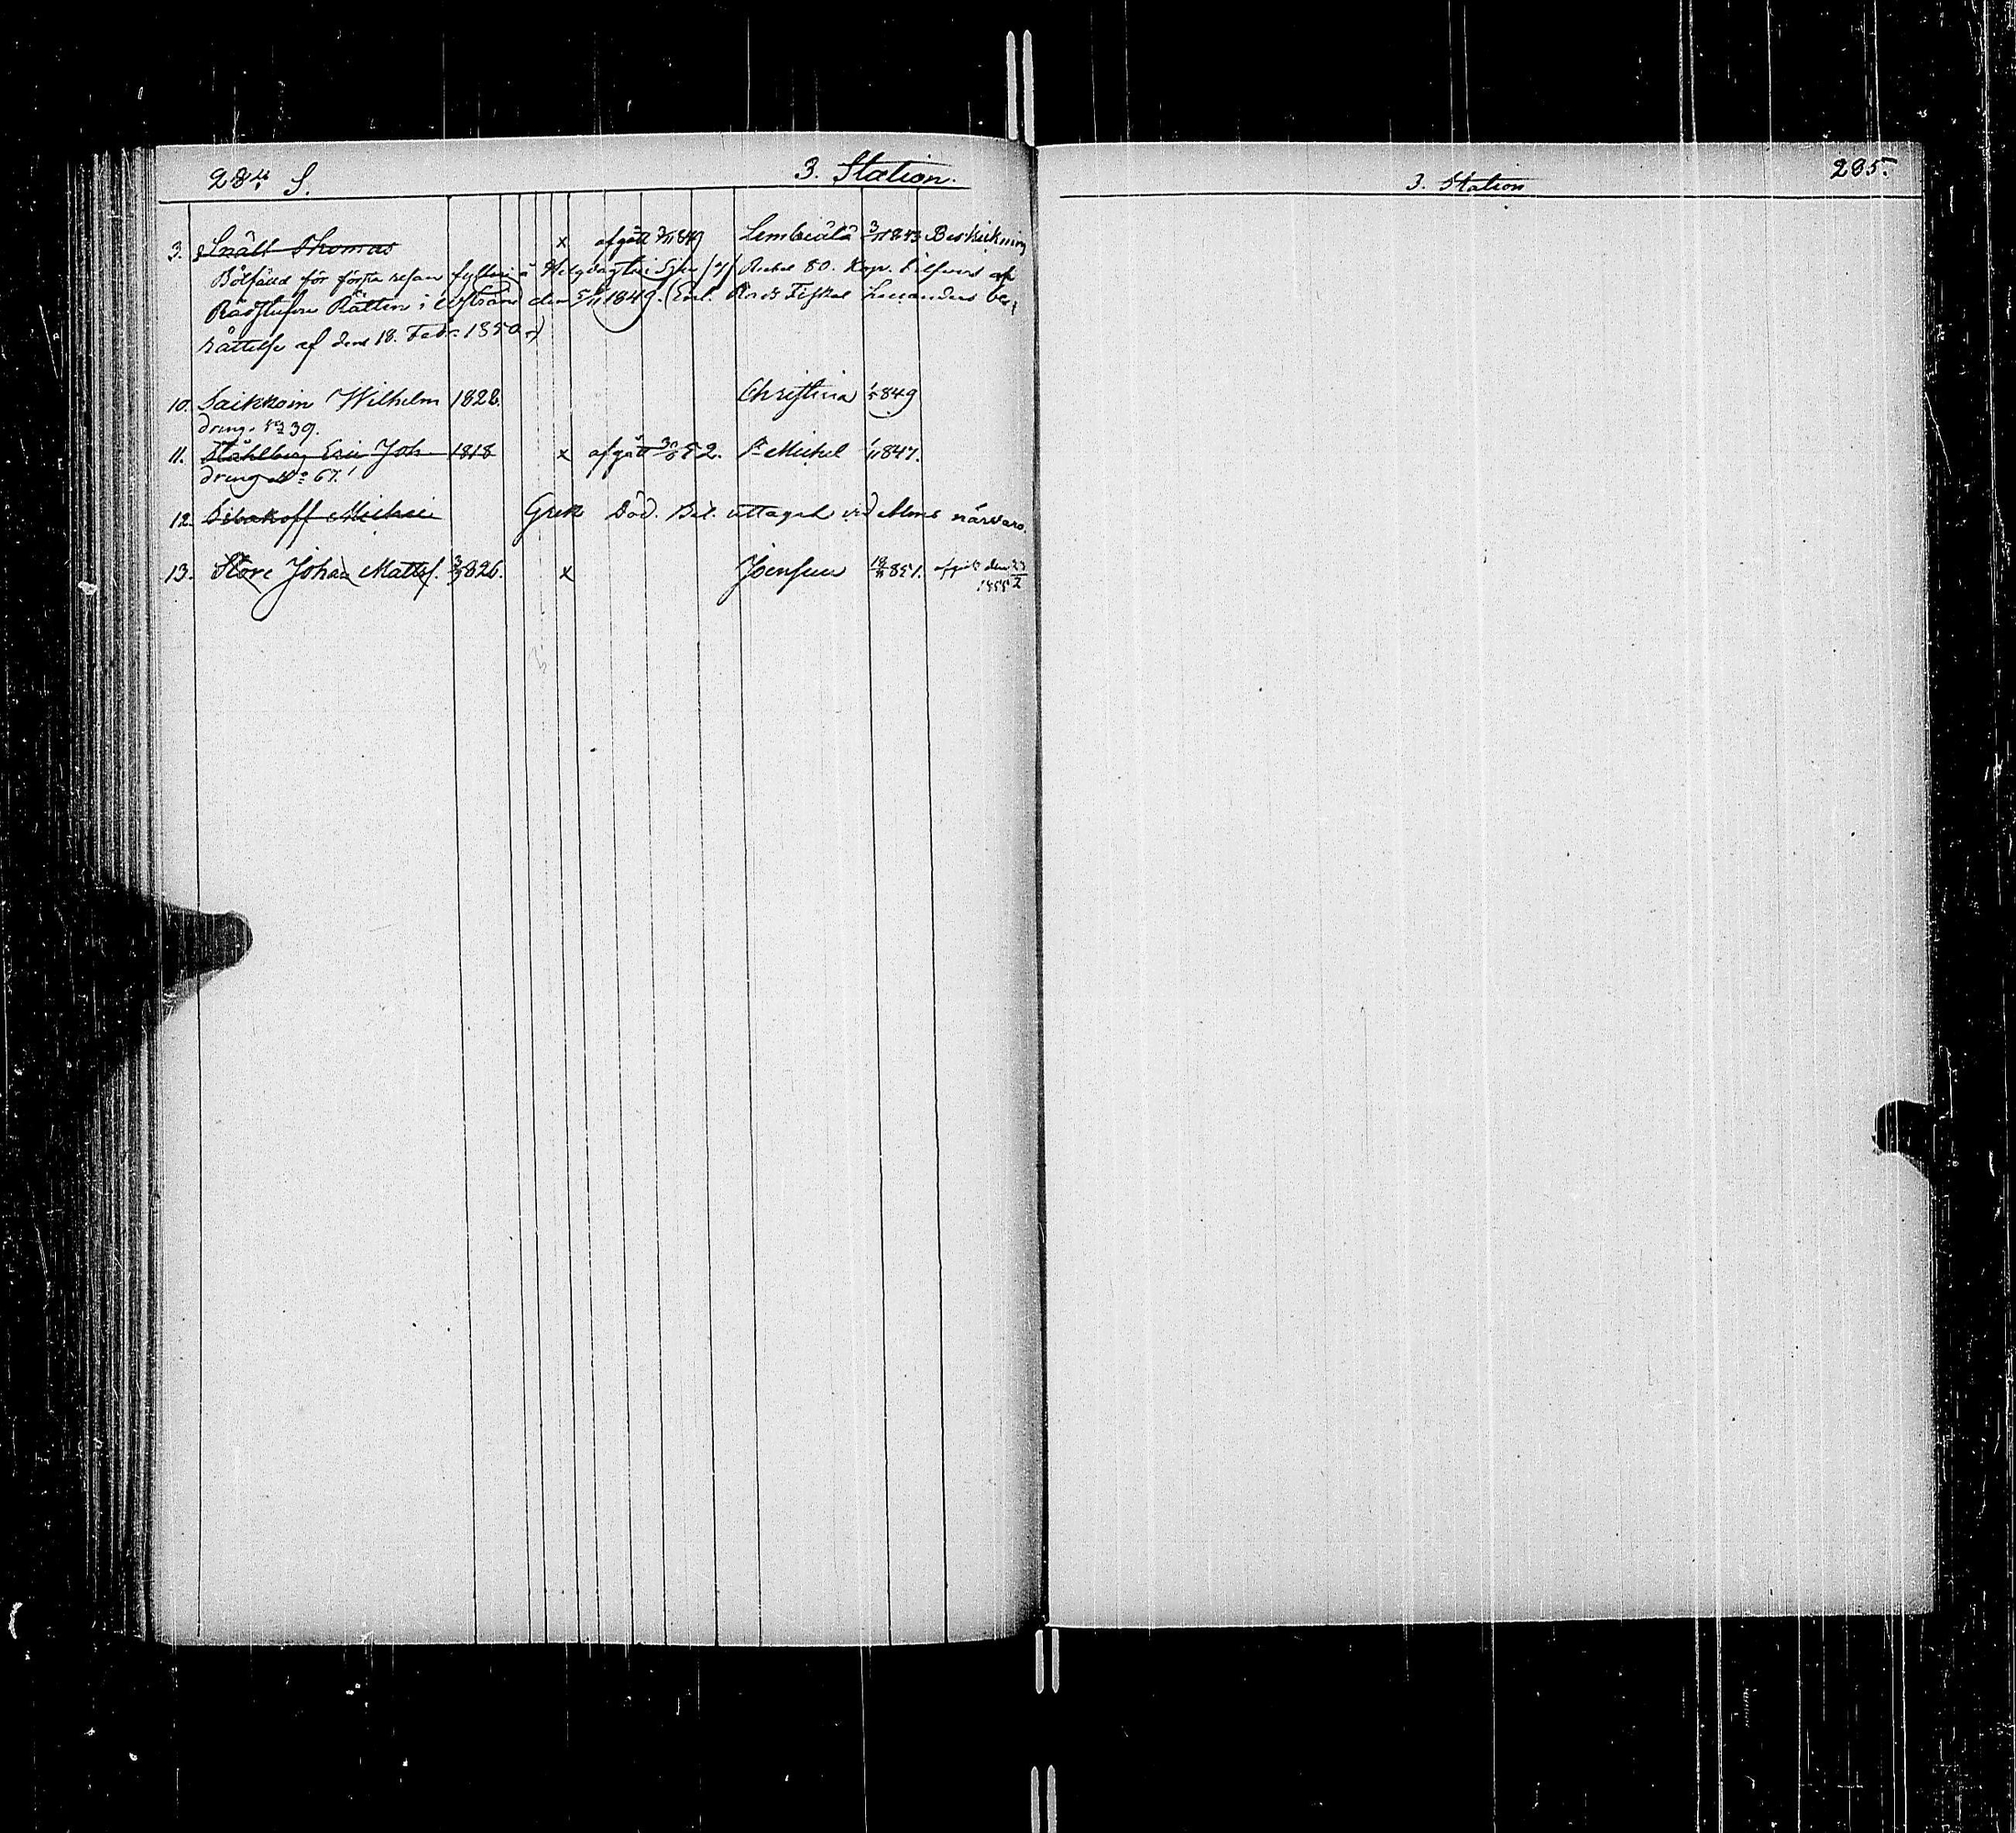 284 S.
3. Station.
3. Snäll Thomas x afgått 3/11 849 Lembeälä 3/11 843 Beskickning
Bötfäld för första resan fylleri å Helgdag Rubel 80. Kop. Silfver af
Rådstufvu Rätten i den 5/11 1849. (Enl. Råds Fiskal be-
rättelse af den 18. Febr. 1850.)
10. Saikkoin Wilhelm 1828. Christina 849
dreng. No 39.
11. Ståhlberg Eric Joh. 1818 x afgått 52. St Michel 1/11 847.
dreng No 67.
12. Michei Grek Död. Bet. uttaget vid Alms närvaro.
13. Store Johan Matts. 826. x Joensuu 851. afgått den 23/2
1855
3. Station
285.